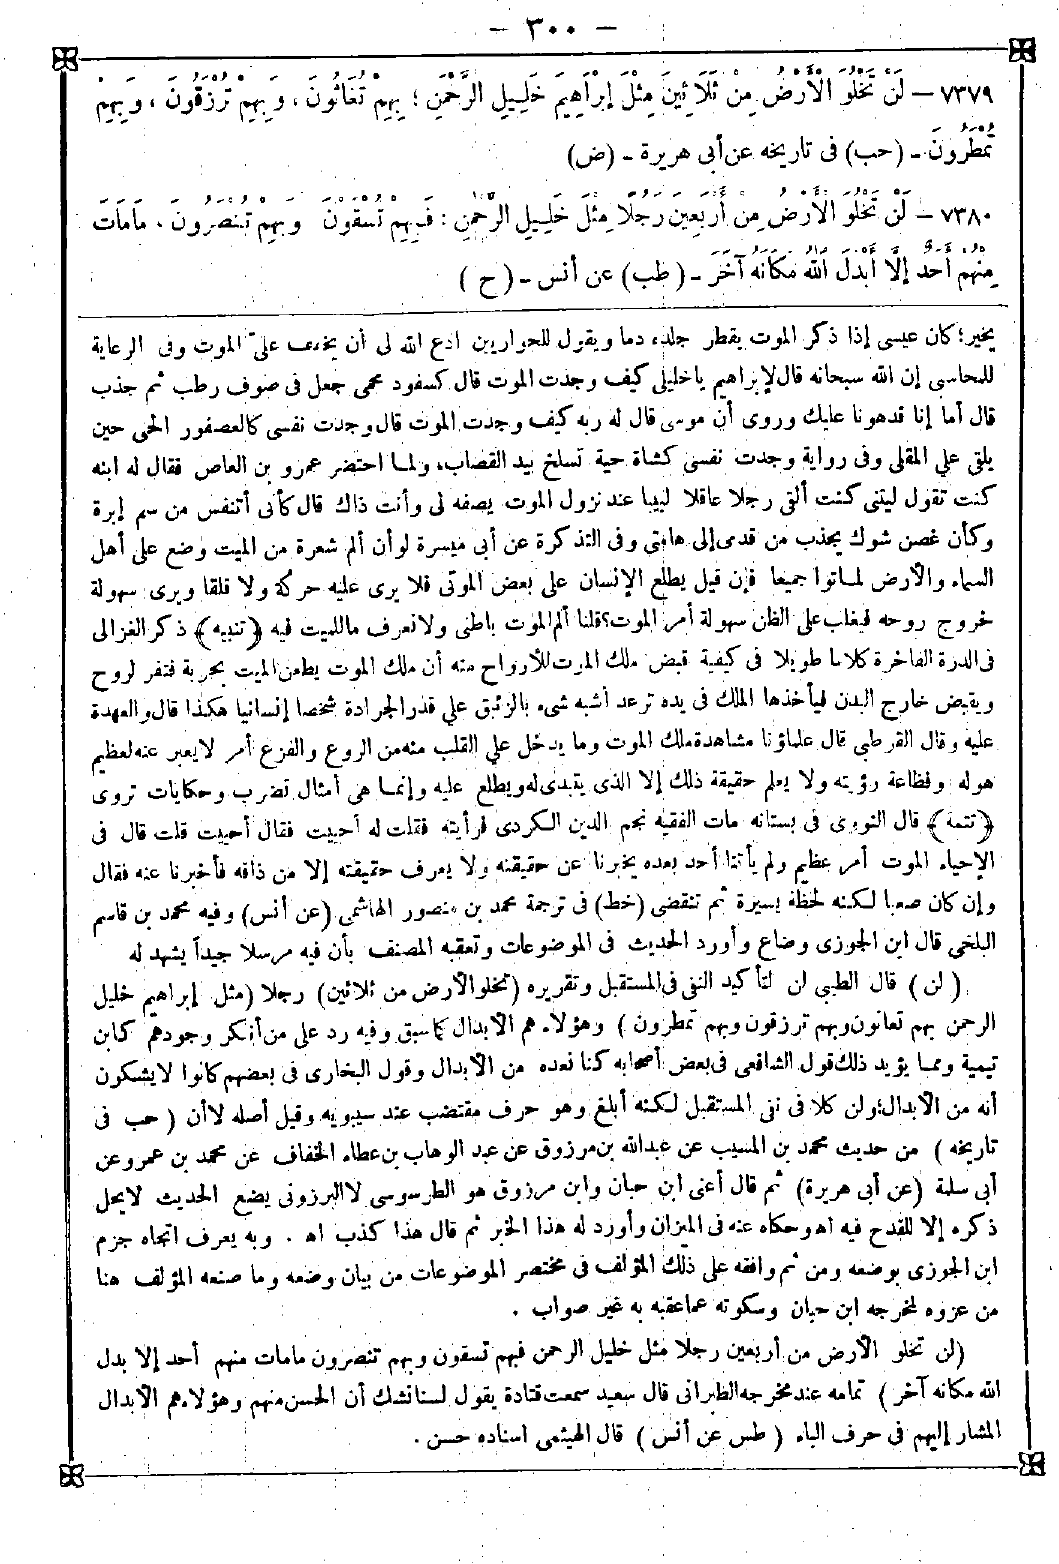 – ٣٠٠ –
٧٣٧٩ – لَنْ تَخْلُوَ الْأَرْضُ مِنْ ثَلَاثِينَ مِثْلَ إِبْرَاهِيمَ خَلِيلِ الرَّحْمَنِ ؛ بِهِمْ تُغَاثُونَ ، وَبِهِمْ تُرْزَقُونَ ، وَبِهِمْ
تُمْطَرُونَ – (حب) فى تاريخه عن أبى هريرة – (ض)
٧٣٨٠ – لَنْ تَخْلُوَ الْأَرْضُ مِنْ أَرْبَعِينَ رَجُلًا مِثْلَ خَلِيلِ الرَّحْمٰنِ : فَبِهِمْ تُسْقَوْنَ وَبِهِمْ تُنْصَرُونَ ، مَامَاتَ
مِنْهُمْ أَحَدٌ إِلَّا أَبْدَلَ اللهُ مَكَانَهُ آخَرَ – (طب) عن أنس – (ح)
يخير؛ كان عيسى إذا ذكر الموت يقطر جلده دما ويقول للحواريين ادع الله لى أن يخفف علىّ الموت وفى الرعاية
للمحاسبي إن الله سبحانه قال لإبراهيم ياخليلى كيف وجدت الموت قال كسفود محمى جعل فى صوف رطب ثم جذب
قال أما إنا قدهونا عليك وروى أن موسى قال له ربه كيف وجدت الموت قال وجدت نفسى كالعصفور الحى حين
يلقى على المقلى وفى رواية وجدت نفسى كشاة حية تسلخ بيد القصاب، ولمـا احتضر عمرو بن العاص فقال له ابنه
كنت تقول ليتنى كنت ألقى رجلا عاقلا لبيبا عند نزول الموت يصفه لى وأنت ذاك قال كأنى أتنفس من سم إبرة
وكأن غصن شوك يجذب من قدمى إلى هامتى وفى التذكرة عن أبى ميسرة لو أن ألم شعرة من الميت وضع على أهل
السماء والأرض لمـاتوا جميعا فإن قيل يطلع الإنسان على بعض الموتى فلا يرى عليه حركة ولا قلقا ويرى سهولة
خروج روحه فيغلب على الظن سهولة أمر الموت؟ قلنا ألم الموت باطنى ولا نعرف ماللميت فيه ﴿تنبيه﴾ ذكر الغزالى
فى الدرة الفاخرة كلاما طويلا فى كيفية قبض ملك الموت للأرواح منه أن ملك الموت يطعن الميت بحربة فتفر لروح
ويقبض خارج البدن فيأخذها الملك فى يده ترعد أشبه شىء بالزئبق على قدر الجرادة شخصا إنسانيا هكذا قال والعهدة
عليه وقال القرطبى قال علماؤنا مشاهدة ملك الموت وما يدخل على القلب منه من الروع والفزع أمر لا يعبر عنه لعظيم
هوله وفظاعة رؤيته ولا يعلم حقيقة ذلك إلا الذى يتبدى له ويطلع عليه وإنمـا هى أمثال تضرب وحكايات تروى
﴿تتمة﴾ قال النووى فى بستانه مات الفقيه نجم الدين الكردى فرأيته فقلت له أحييت فقال أحييت قلت قال فى
الإحياء الموت أمر عظيم ولم يأتنا أحد بعده يخبرنا عن حقيقته ولا يعرف حقيقته إلا من ذاقه فأخبرنا عنه فقال
وإن كان صعبا لـكنه لحظة يسيرة ثم تنقضى (خط) فى ترجمة محمد بن منصور الهاشمى (عن أنس) وفيه محمد بن قاسم
البلخى قال ابن الجوزى وضاع وأورد الحديث فى الموضوعات وتعقبه المصنف بأن فيه مرسلا جيداً يشهد له
(لن) قال الطيبى لن لتأكيد النفى فى المستقبل وتقريره (تخلو الأرض من ثلاثين) رجلا (مثل إبراهيم خليل
الرحمن بهم تغاثون وبهم ترزقون وبهم تمطرون) وهؤلاء هم الأبدال كما سبق وفيه رد على من أنكر وجودهم كابن
تيمية ومما يؤيد ذلك قول الشافعى فى بعض أصحابه كنا نعده من الأبدال وقول البخارى فى بعضهم كانوا لا يشكون
أنه من الأبدال؛ ولن كلا فى نفى المستقبل لـكنه أبلغ وهو حرف مقتضب عند سيبويه وقيل أصله لا أن (حب فى
تاريخه) من حديث محمد بن المسيب عن عبدالله بن مرزوق عن عبد الوهاب بن عطاء الخفاف عن محمد بن عمرو عن
أبى سلمة (عن أبى هريرة) ثم قال أعنى ابن حبان وابن مرزوق هو الطرسوسى لا البرزونى يضع الحديث لا يحل
ذكره إلا للقدح فيه اه وحكاه عنه فى الميزان وأورد له هذا الخبر ثم قال هذا كذب اه . وبه يعرف اتجاه جزم
ابن الجوزى بوضعه ومن ثم وافقه على ذلك المؤلف فى مختصر الموضوعات من بيان وضعه وما صنعه المؤلف هنا
من عزوه لمخرجه ابن حبان وسكوته عما عقبه به غير صواب .
(لن تخلو الأرض من أربعين رجلا مثل خليل الرحمن فبهم تسقون وبهم تنصرون مامات منهم أحد إلا بدل
الله مكانه آخر) تمامه عند مخرجه الطبرانى قال سعيد سمعت قتادة يقول لسنا نشك أن الحسن منهم وهؤلاء هم الأبدال
المشار إليهم فى حرف الباء (طس عن أنس) قال الهيثمى اسناده حسن .